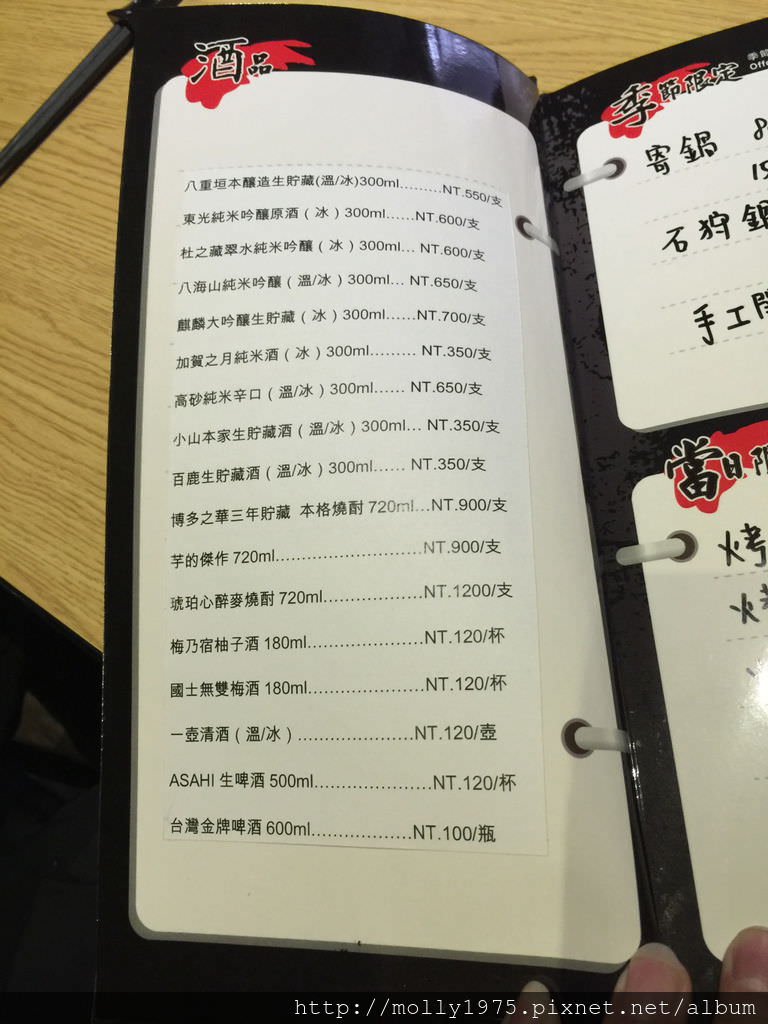 酒品
八重垣本釀造生貯藏(溫/冰)300ml.........NT.550/支
東光純米吟釀原酒（冰）300ml......NT.600/支
杜之藏翠水純米吟釀（冰）300ml... NT.600/支
八海山純米吟釀（溫/冰）300ml... NT.650/支
麒麟大吟釀生貯藏（冰）300ml......NT.700/支
加賀之月純米酒（冰）300ml......... NT.350/支
高砂純米辛口（溫/冰）300ml...... NT.650/支
小山本家生貯藏酒（溫/冰）300ml... NT.350/支
百鹿生貯藏酒（溫/冰）300ml...... NT.350/支
博多之華三年貯藏 本格燒酎 720ml...NT.900/支
芋的傑作 720ml...........................NT.900/支
琥珀心醉麥燒酎 720ml..................NT.1200/支
梅乃宿柚子酒 180ml.....................NT.120/杯
國士無雙梅酒 180ml.....................NT.120/杯
一壺清酒（溫/冰）.....................NT.120/壺
ASAHI 生啤酒 500ml.....................NT.120/杯
台灣金牌啤酒 600ml..................NT.100/瓶
季節限定
季節
Offe
寄鍋 8
15
石狩鍋
手工
當日限
烤
烤
http://molly1975.pixnet.net/album